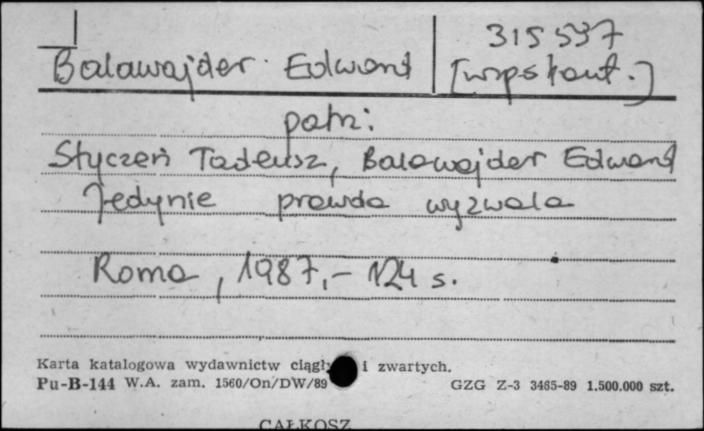 315537
Balawajder Edward [współaut.]
patrz:
Styczeń Tadeusz, Balawajder Edward
Jedynie prawda wyzwala
Roma, 1987.- 124 s.
Karta katalogowa wydawnictw ciągły i zwartych.
Pu-B-144 W.A. zam. 1560/On/DW/89 GZG Z-3 3465-89 1.500.000 szt.
CAŁKOSZ